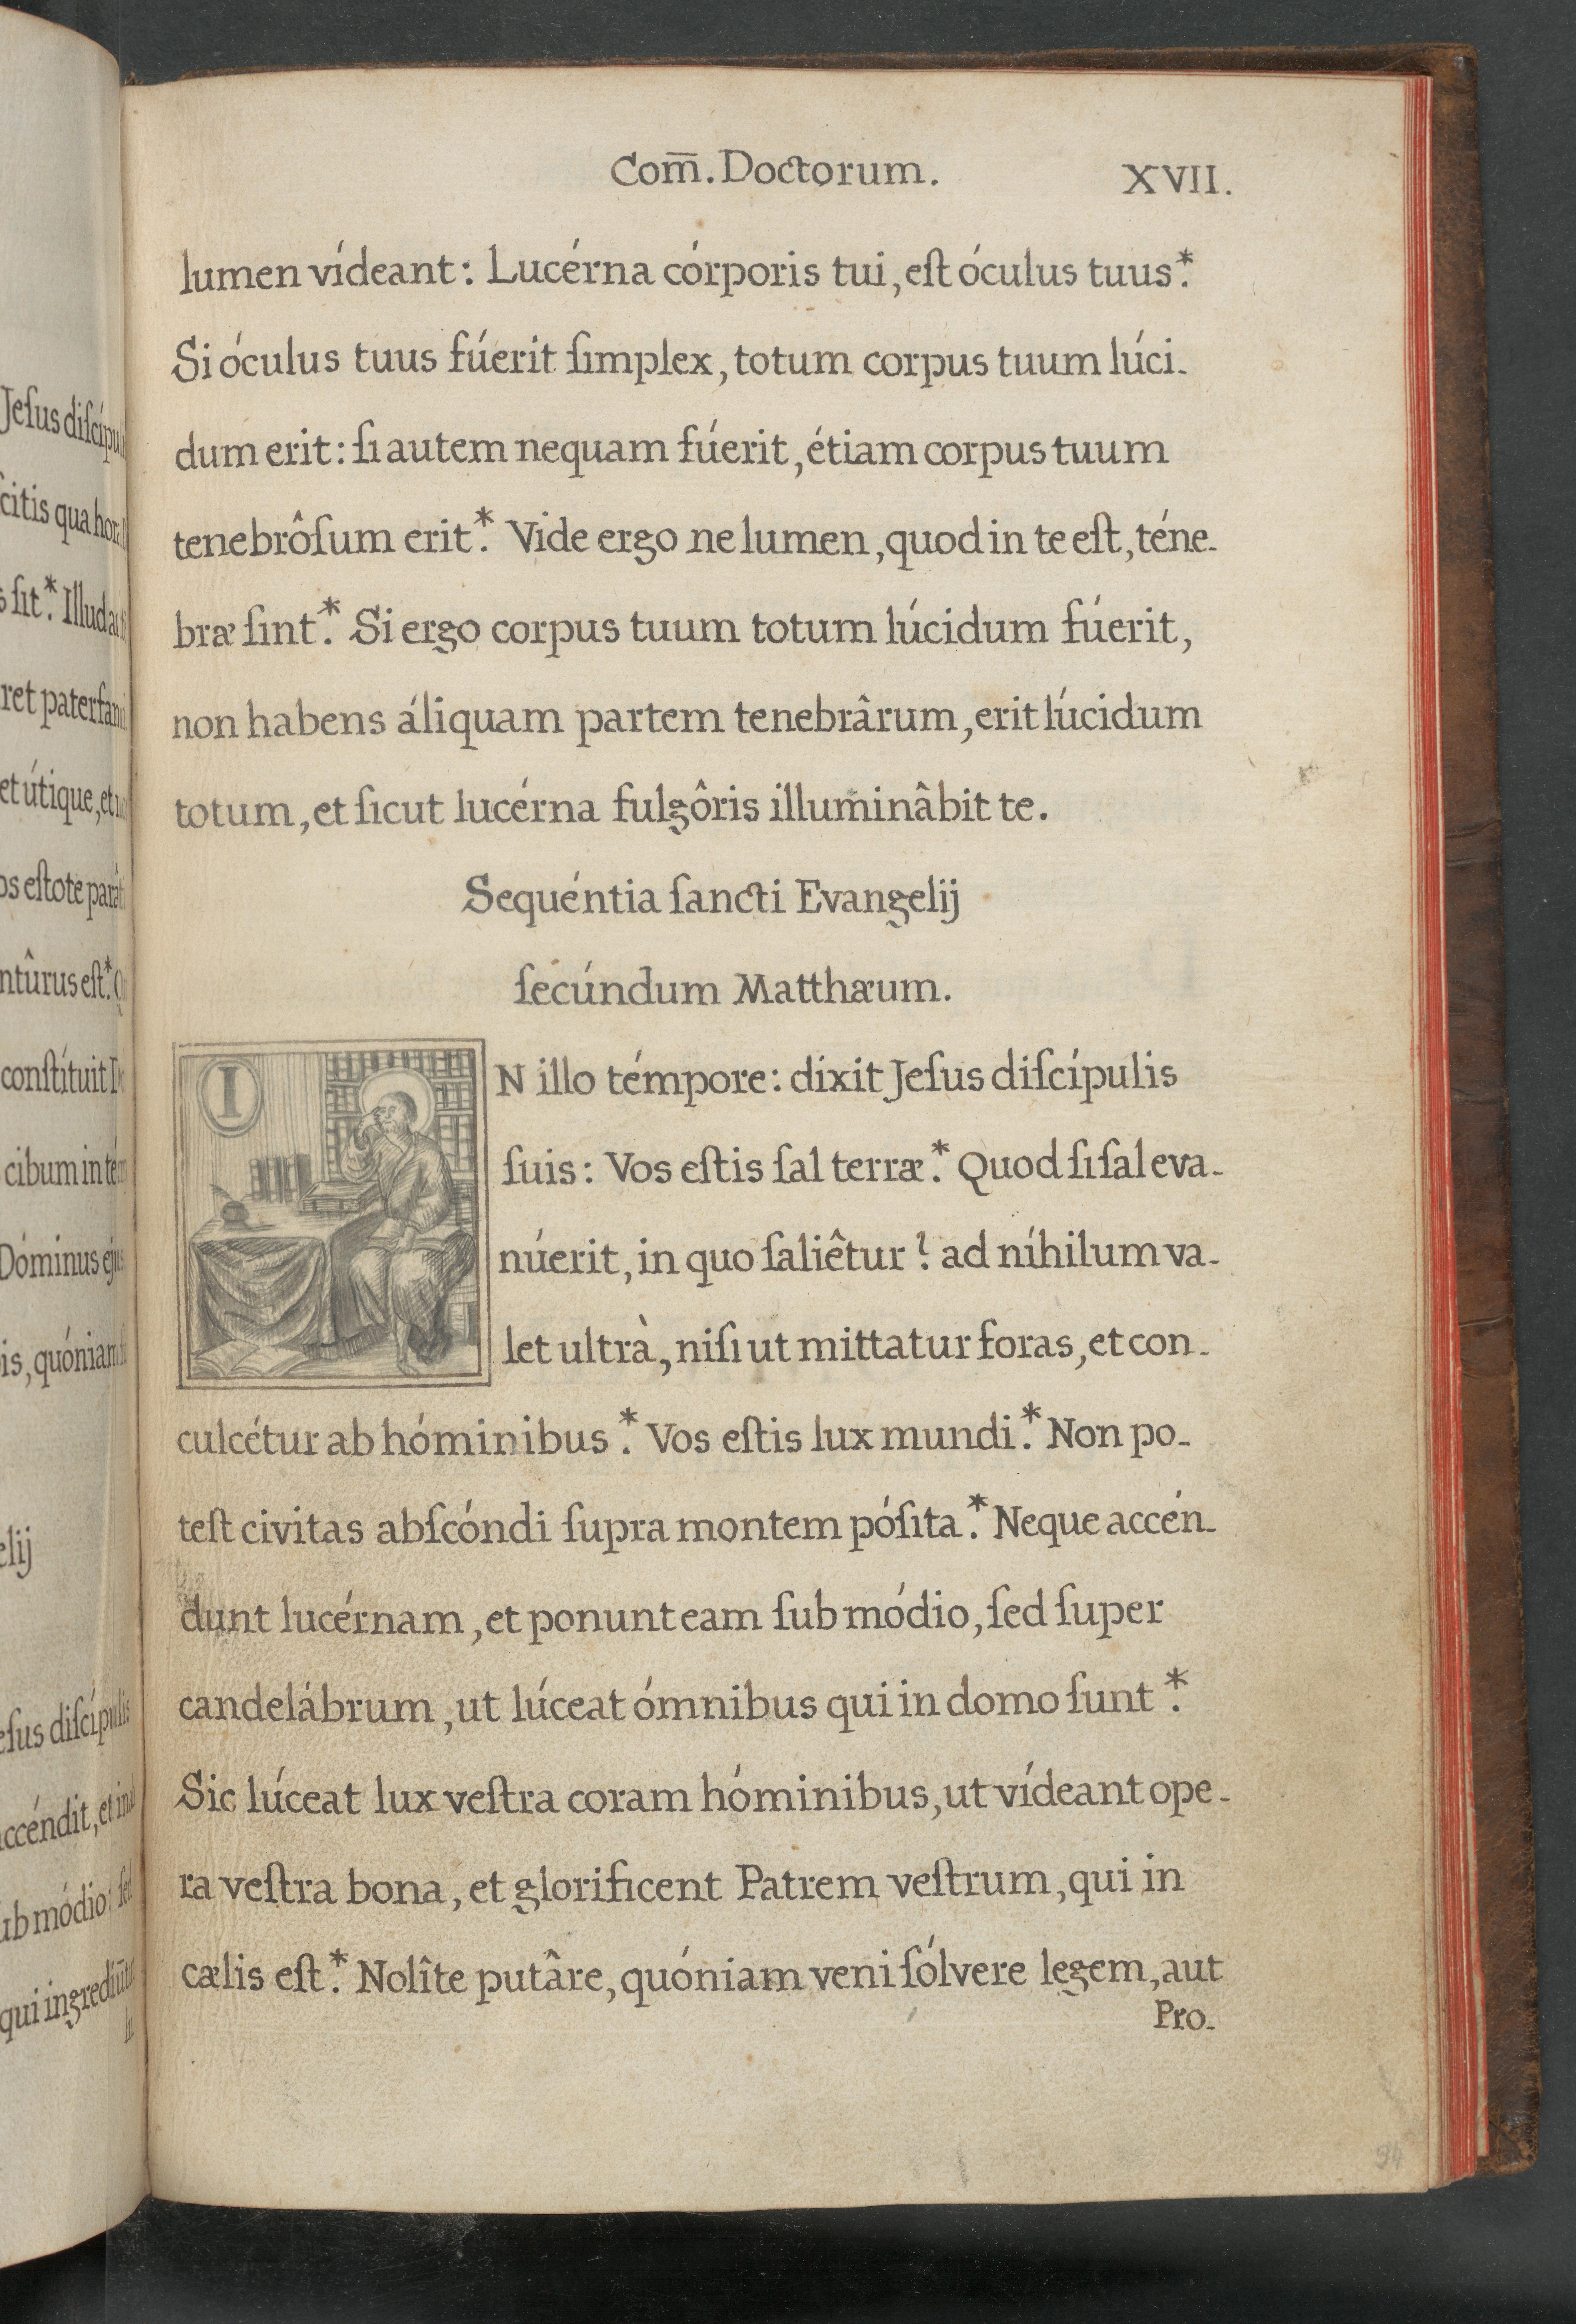 Jeſus diſcípu
citis qua hora
s ſit.* Illud au
ret paterfami
et útique, et
os eſtote pará
ntûrus eſt.* Q
conſtítuit
cibum in té
Dóminus ejus
is, quóniam
lij
eſus diſcípulis
ccéndit, et in a
ub módio: ſed
qui ingrediūt
Com̅. Doctorum. XVII.
lumen vídeant: Lucérna córporis tui, eſt óculus tuus.*
Si óculus tuus fúerit ſimplex, totum corpus tuum lúci-
dum erit: ſi autem nequam fúerit, étiam corpus tuum
tenebrôſum erit.* Vide ergo ne lumen, quod in te eſt, téne-
bræ ſint.* Si ergo corpus tuum totum lúcidum fúerit,
non habens áliquam partem tenebrârum, erit lúcidum
totum, et ſicut lucérna fulgôris illuminâbit te.
Sequéntia ſancti Evangelij
ſecúndum Matthæum.
IN illo témpore: dixit Jeſus diſcípulis
ſuis: Vos eſtis ſal terræ.* Quod ſi ſal eva-
núerit, in quo ſaliêtur? ad níhilum va-
let ultrà, niſi ut mittatur foras, et con-
culcétur ab homínibus.* Vos eſtis lux mundi.* Non po-
teſt civitas abſcóndi ſupra montem póſita.* Neque accén-
dunt lucérnam, et ponunt eam ſub módio, ſed ſuper
candelábrum, ut lúceat ómnibus qui in domo ſunt.*
Sic lúceat lux veſtra coram hóminibus, ut vídeant ope-
ra veſtra bona, et glorificent Patrem veſtrum, qui in
cælis eſt.* Nolîte putâre, quóniam veni ſólvere legem, aut
Pro-
94